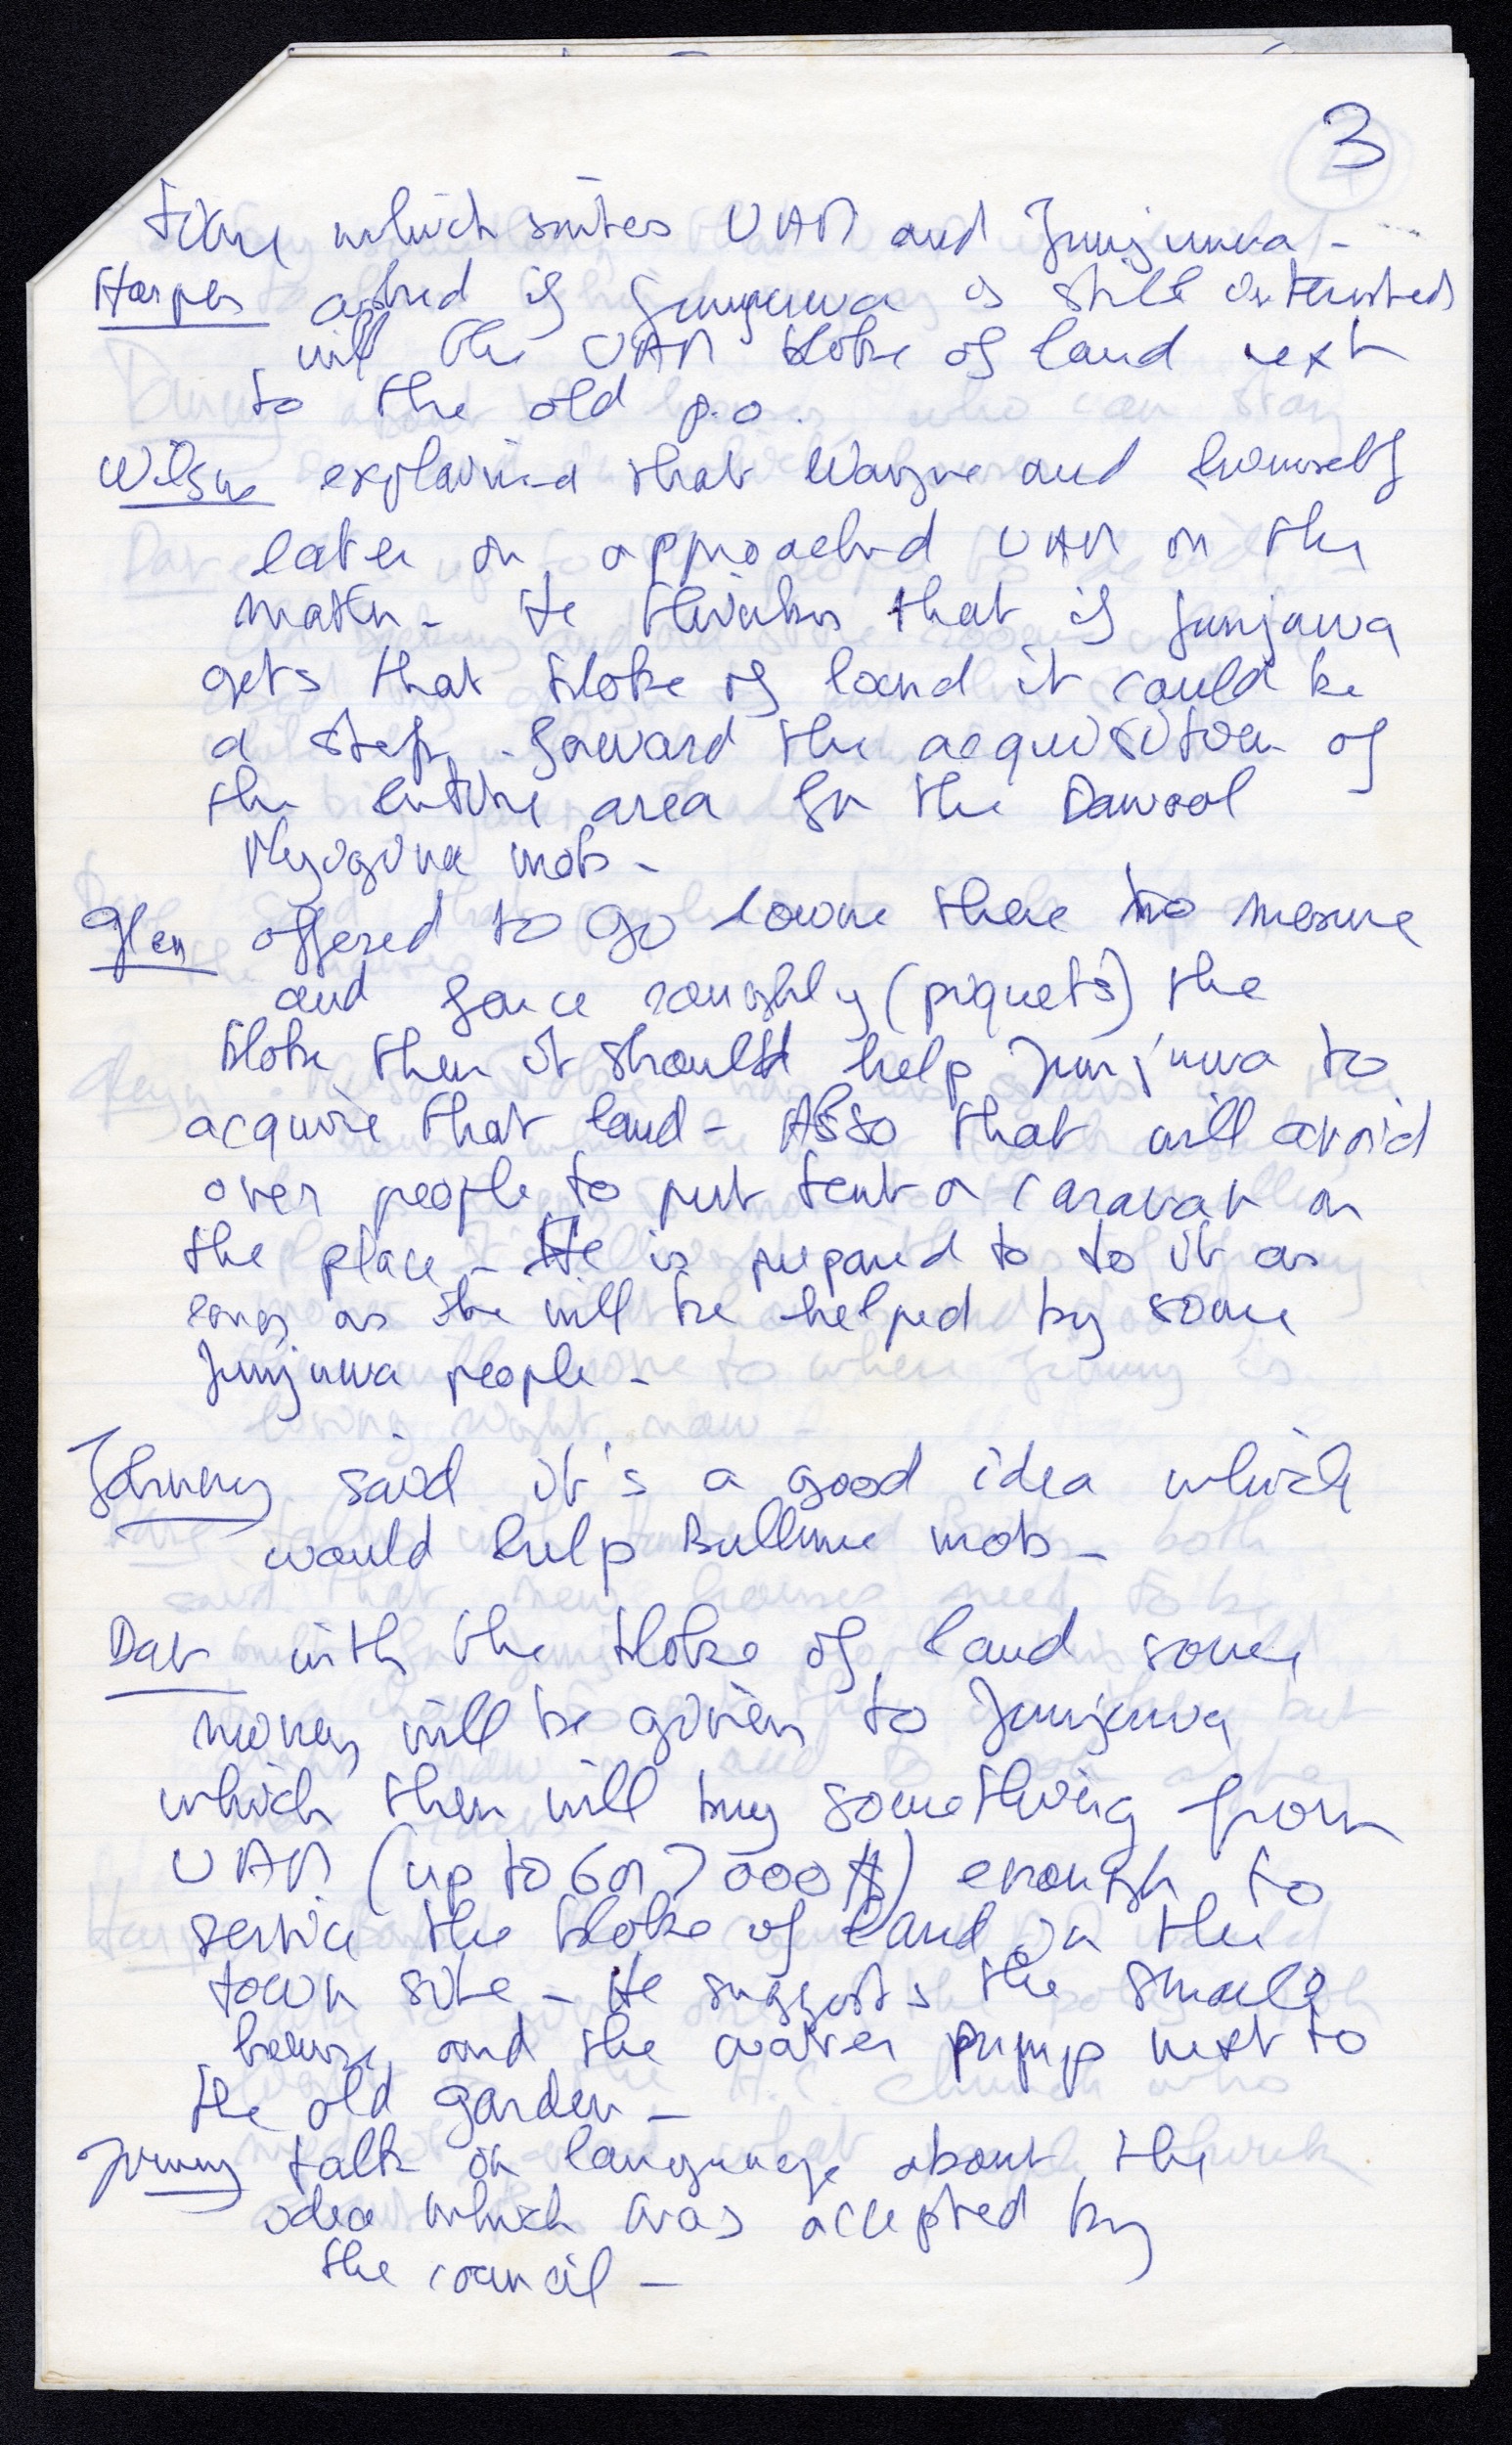 3
time which suites UAM and Junjuwa -
Harper asked if Junjuwa is still interested
with the UAM bloke of land next
to the old p.o.
Wilson explained that Wayne and himself
later on approached UAM on the
matter - He thinks that if Junjuwa
gets that bloke of land it could be
a step forward the acquisition of
the entire area for the
mob -
Glen offered to go downe there to mesure
and fence roughly (piquets) the
bloke then it should help Junjuwa to
acquire that land - Also that will avoid
over people to put tent or caravan on
the place - He is prepared to to it as
long as he will be helped by some
Junjuwa people -
Johnney said it's a good idea which
would help mob -
Dav with the bloke of land some
money will be given to Junjuwa
which then will buy something from
UAM (up to 6 or 7 000 $) enough to
service the bloke of land in the
town site - He suggests the small
house and the water pump next to
the old garden -
talk in language about the
idea which was accepted by
the council -